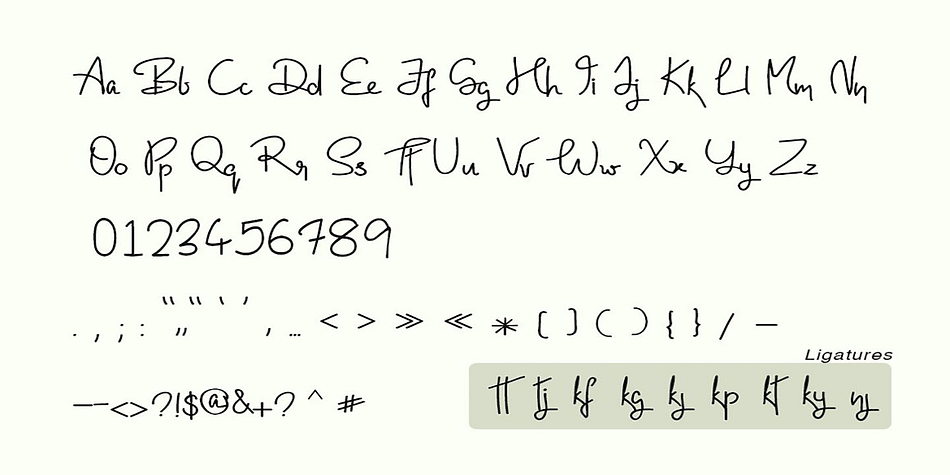 Aa Bb Cc Dd Ee Ff Gg Hh Ii Jj Kk Ll Mm Nn
Oo Pp Qq Rr Ss Tt Uu Vv Ww Xx Yy Zz
0123456789
. , ; : “ “ „ ‘ ’ , … < > » « * [ ] ( ) { } / –
Ligatures
—–<>?!$@&+? ^ #
tt tj kf kg kj kp kt ky yj